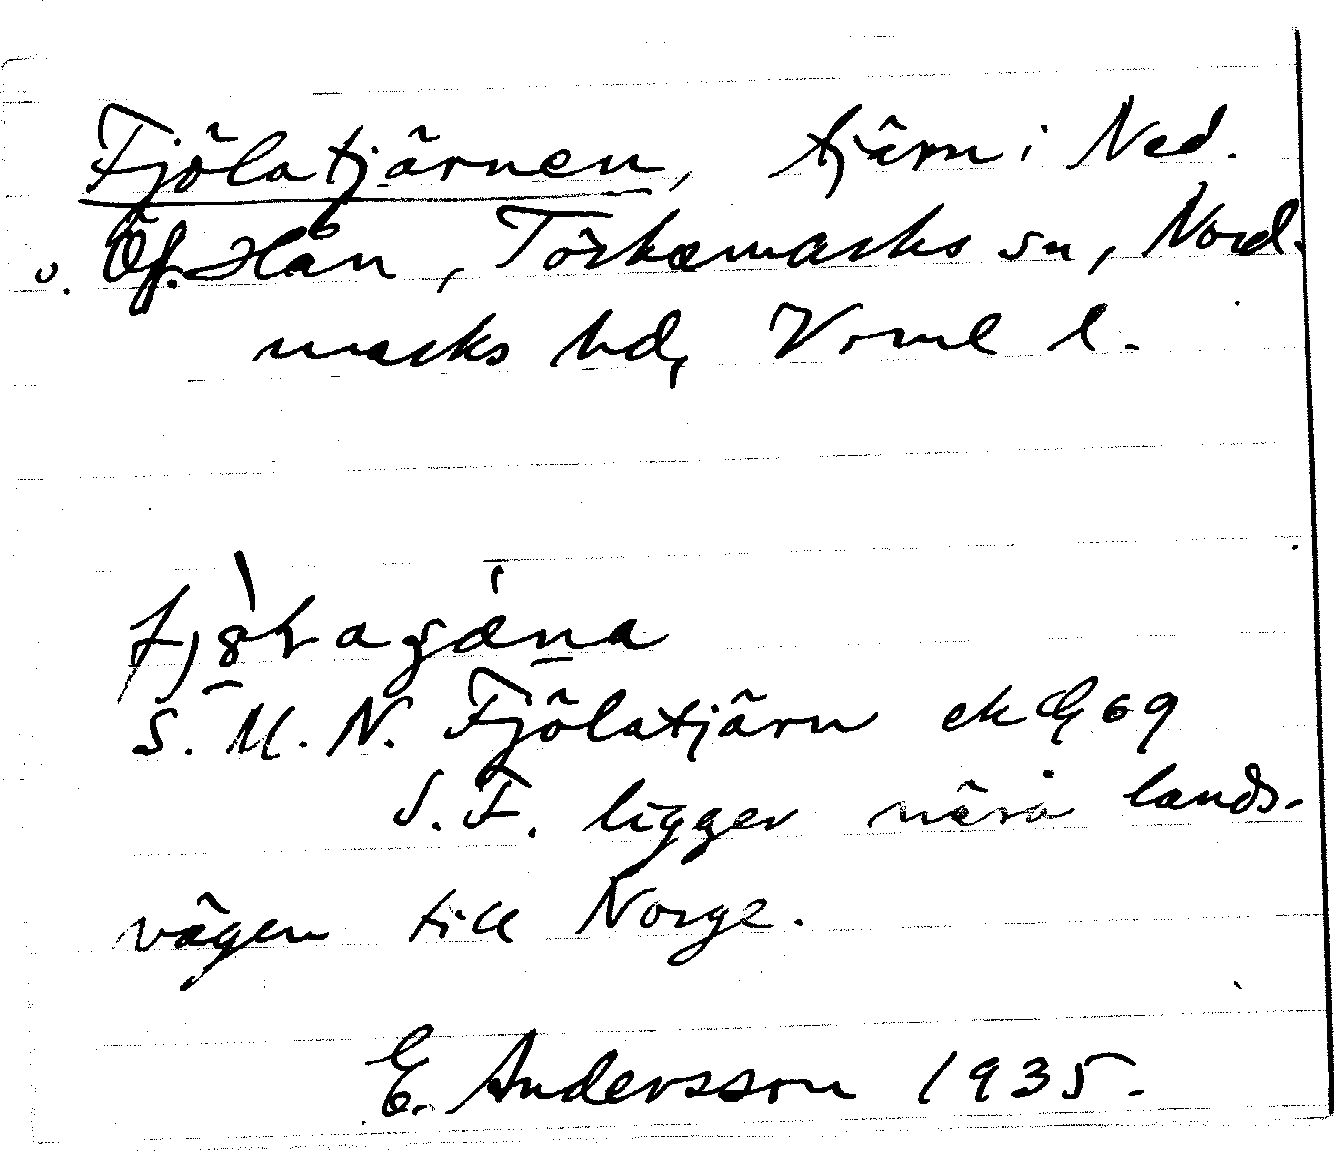 Fjölatjärnen, tjärn i Ned.
o. Öf. Hån, Töcksmarks sn, Nord-
marks hd, Vrml l.
S.M.N. Fjölatjärn ek G 69
S.F. ligger nära lands-
vägen till Norge.
E. Andersson 1935.